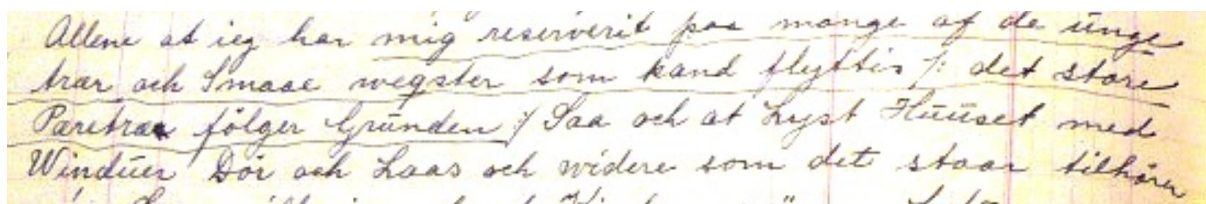 Allene at ieg har mig reserverit paa mange af de ünge
trær och Smaae wegster som kand flyttis /: det store
Pæretræe følger Gründen :/ Saa och at Lyst Huüset med
Windüer Dör och Laas och widere som det staar tilhörer